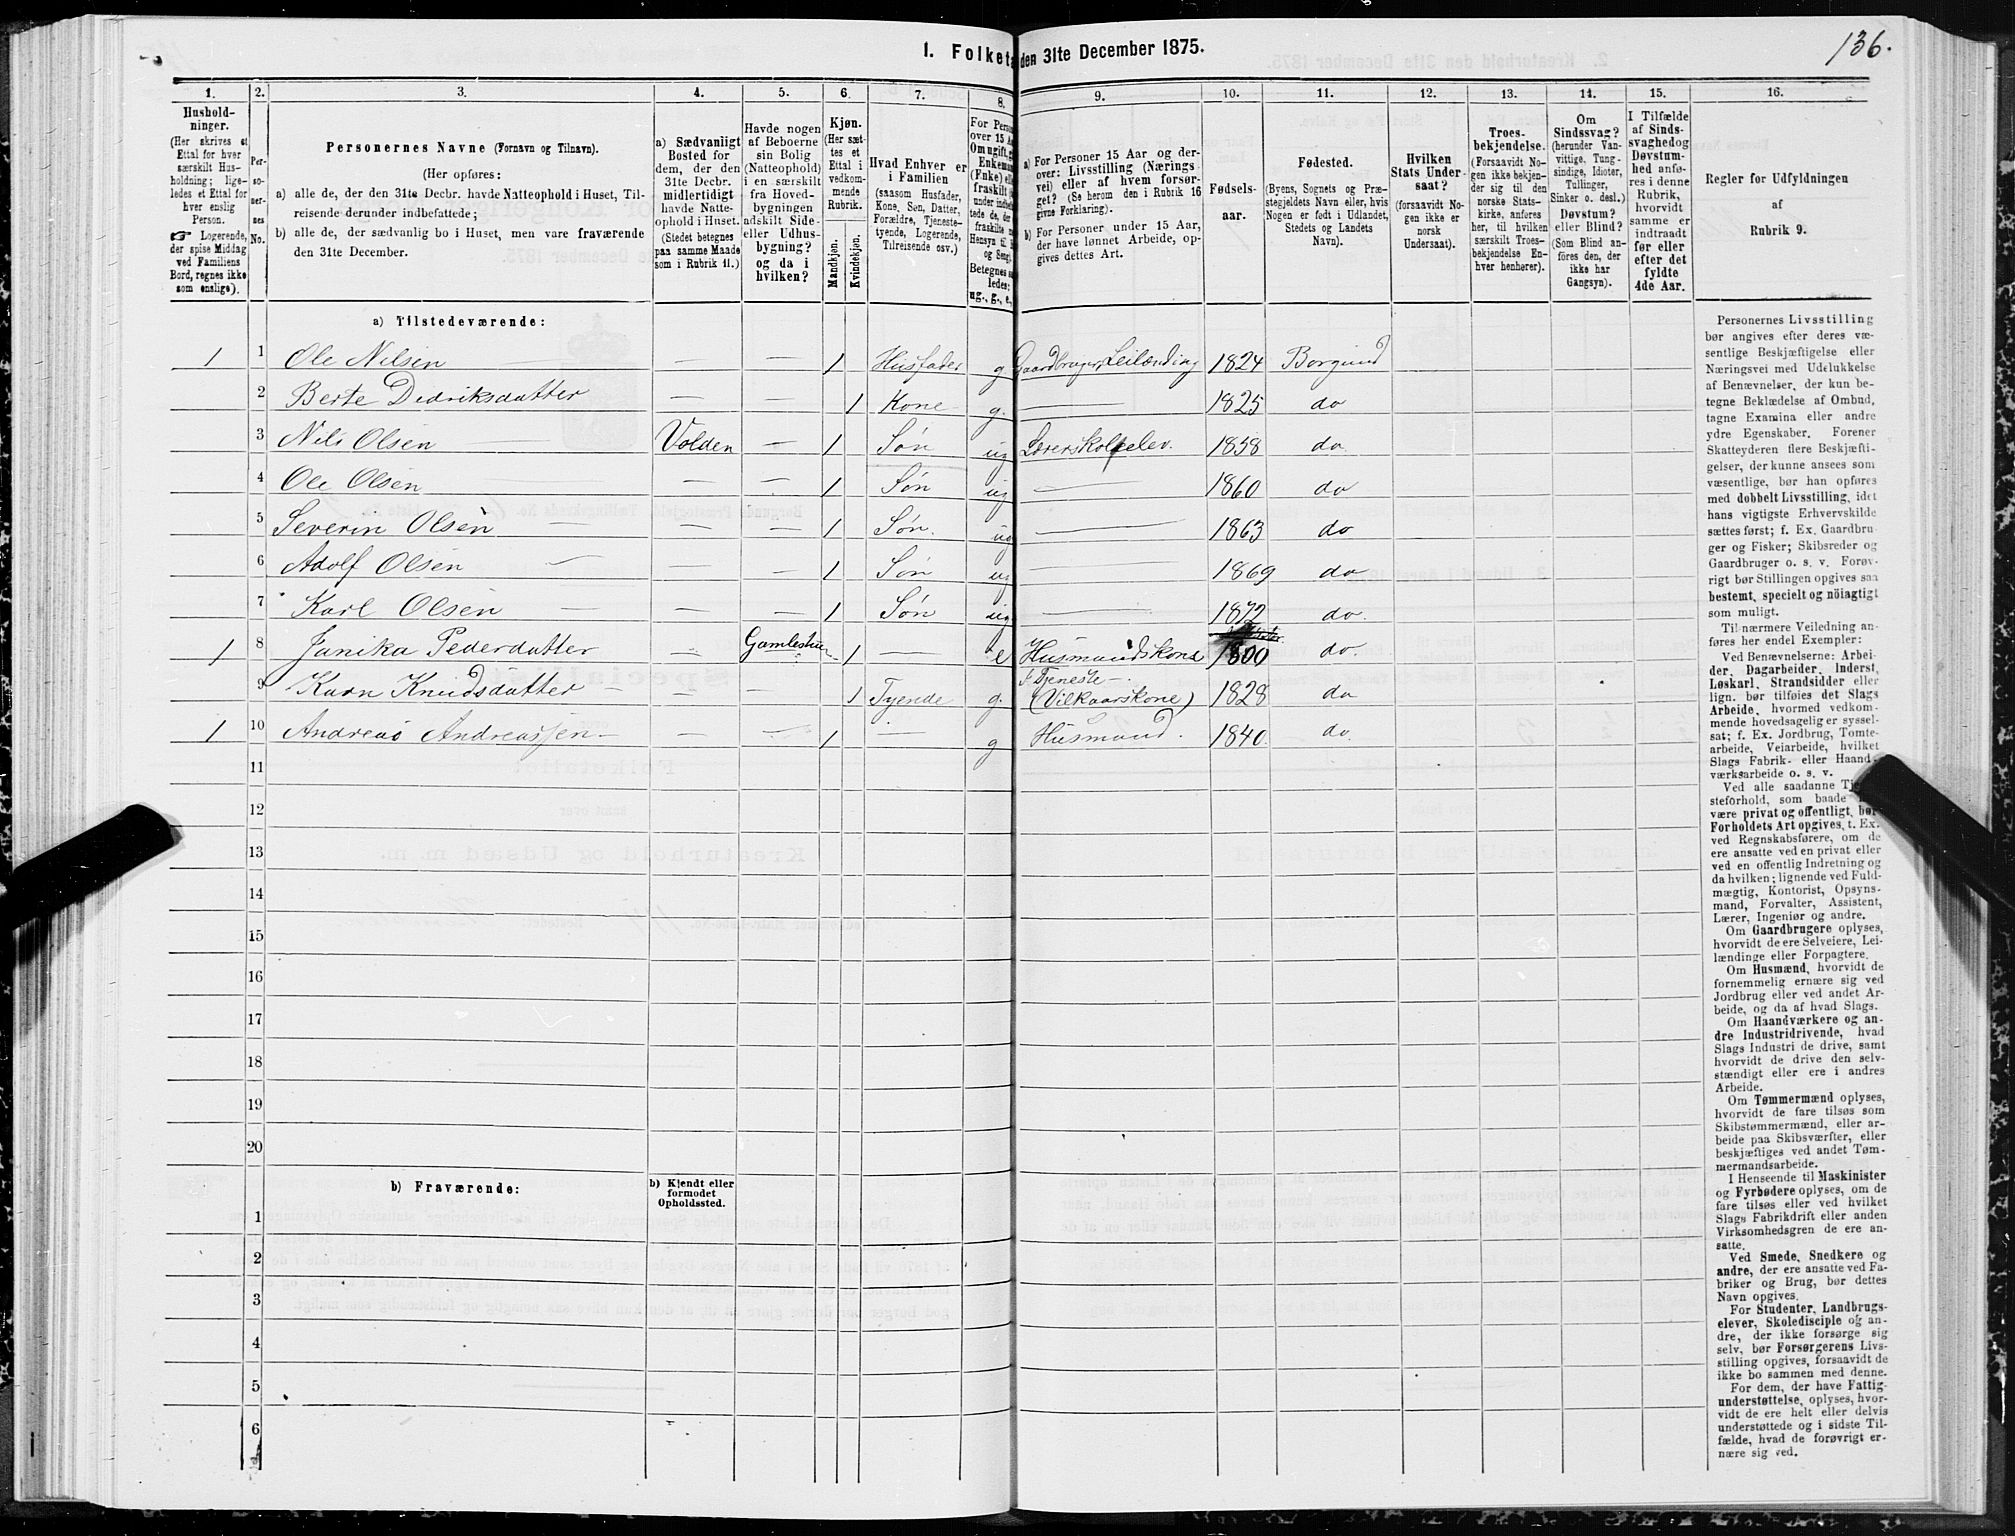 136.
1. Folketa den 31te December 1875.
1. 2. 3. 4. 5. 6. 7. 8. 9. 10. 11. 12. 13. 14. 15. 16.
Hushold-
ninger.
(Her skrives et
Ettal for hver
særskilt Hus-
holdning; lige-
ledes et Ettal for
hver enslig
Person.
☞ Logerende,
der spise Middag
ved Familiens
Bord, regnes ikke
som enslige).
Per-
so-
ner-
nes
No.
Personernes Navne (Fornavn og Tilnavn).
(Her opføres:
a) alle de, der den 31te Decbr. havde Natteophold i Huset, Til-
reisende derunder indbefattede;
b) alle de, der sædvanlig bo i Huset, men vare fraværende
den 31te December.
a) Sædvanligt
Bosted for
dem, der den
31te Decbr.
midlertidigt
havde Natte-
ophold i Huset.
(Stedet betegnes
paa samme Maade
som i Rubrik 11.)
Havde nogen
af Beboerne
sin Bolig
(Natteophold)
i en særskilt
fra Hoved-
bygningen
adskilt Side-
eller Udhus-
bygning?
og da i
hvilken?
Kjøn.
(Her sæt-
tes et
Ettal i
vedkom-
mende
Rubrik.
Mandkjøn.
Kvindekjøn.
Hvad Enhver er
i Familien
(saasom Husfader,
Kone, Søn, Datter,
Forældre, Tjeneste-
tyende, Logerende,
Tilreisende osv.)
For Person
over 15 Aa
Om ugift, g
Enkeman
(Fnke) ell
fraskilt
under indbe
tede de, de
fraskilte m
Hensyn til B
og Seng
Betegnes s
ledes:
ug., g., e.,
a) For Personer 15 Aar og der-
over: Livsstilling (Nærings-
vei) eller af hvem forsør-
get? (Se herom den i Rubrik 16
givne Forklaring).
b) For Personer under 15 Aar,
der have lønnet Arbeide, op-
gives dettes Art.
Fødsels-
aar.
Fødested.
(Byens, Sognets og Præ-
stegjeldets Navn eller, hvis
Nogen er født i Udlandet,
Stedets og Landets
Navn).
Hvilken
Stats Under-
saat?
(forsaavidt No-
gen ikke er
norsk
Undersaat).
Troes-
bekjendelse.
(Forsaavidt No-
gen ikke bekjen-
der sig til den
norske Stats-
kirke, anføres
her, til hvilken
særskilt Troes-
bekjendelse En-
hver henhører).
Om
Sindssvag?
(herunder Van-
vittige, Tung-
sindige, Idioter,
Tullinger,
Sinker o. desl.)
Døvstum?
eller Blind?
(Som Blind an-
føres den, der
ikke har
Gangsyn).
I Tilfælde
af Sinds-
svaghed og
Døvstum-
hed anfø-
res i denne
Rubrik,
hvorvidt
samme er
indtraadt
før eller
efter det
fyldte
4de Aar.
Regler for Udfyldningen
af
Rubrik 9.
a) Tilstedeværende:
1 1 Ole Nilsen — — 1 Husfader g Gaardbruger Leilænding 1824 Borgund
2 Berte Didriksdatter — — 1 Kone g. — 1825 do
3 Nils Olsen — Volden — 1 Søn ug Lærerskoleelev. 1858 do
4 Ole Olsen — — — 1 Søn ug — 1860 do
5 Severin Olsen — — — 1 Søn. ug — 1863 do
6 Adolf Olsen — — — 1 Søn ug — 1869 do
7 Karl Olsen — — — 1 Søn ug — 1872 do.
1 8 Janika Pedersdatter — Gamlestuen 1 — e Husmandskone 1800 do.
9 Karn Knudsdatter — — — 1 Tyende g. F. Tjeneste — (Vilkaarskone) 1828 do
1 10 Andreas Andreassen — — — 1 — g Husmand. 1840. do.
11
12
13
14
15
16
17
18
19
20
b) Fraværende:
b) Kjendt eller
formodet
Opholdssted.
1
2
3
4
5
6
Personernes Livsstilling
bør angives efter deres væ-
sentlige Beskjæftigelse eller
Næringsvei med Udelukkelse
af Benævnelser, der kun be-
tegne Beklædelse af Ombud,
tagne Examina eller andre
ydre Egenskaber. Forener
Skatteyderen flere Beskjæfti-
gelser, der kunne ansees som
væsentlige, bør han opføres
med dobbelt Livsstilling, idet
hans vigtigste Erhvervskilde
sættes først; f. Ex. Gaardbru-
ger og Fisker; Skibsreder og
Gaardbruger o. s. v. Forøv-
rigt bør Stillingen opgives saa
bestemt, specielt og nöiagtigt
som muligt.
Til nærmere Veiledning an-
føres her endel Exempler:
Ved Benævnelserne: Arbei-
der, Dagarbeider, Inderst,
Løskarl, Strandsidder eller
lign. bør tilføies det Slags
Arbeide, hvormed vedkom-
mende hovedsagelig er syssel-
sat; f. Ex. Jordbrug, Tomte-
arbeide, Veiarbeide, hvilket
Slags Fabrik- eller Haand-
værksarbeide o. s. v.
Ved alle saadanne Tje
steforhold, som baade
være privat og offentligt, bør
Forholdets Art opgives, t. Ex.
ved Regnskabsførere, om de
ere ansatte ved en privat eller
ved en offentlig Indretning og
da hvilken; lignende ved Fuld-
mægtig, Kontorist, Opsyns-
mand, Forvalter, Assistent,
Lærer, Ingeniør og andre.
Om Gaardbrugere oplyses,
hvorvidt de ere Selveiere, Lei-
lændinge eller Forpagtere.
Om Husmænd, hvorvidt de
fornemmelig ernære sig ved
Jordbrug eller ved andet Ar-
beide, og da af hvad Slags.
Om Haandværkere og an-
dre Industridrivende, hvad
Slags Industri de drive, samt
hvorvidt de drive den selv-
stændigt eller ere i andres
Arbeide.
Om Tømmermænd oplyses,
hvorvidt de fare tilsøs som
Skibstømmermænd, eller ar-
beide paa Skibsværfter, eller
beskjæftiges ved andet Tøm-
mermandsarbeide.
I Henseende til Maskinister
og Fyrbødere oplyses, om de
fare tilsøs eller ved hvilket
Slags Fabrikdrift eller anden
Virksomhedsgren de ere an-
satte.
Ved Smede, Snedkere og
andre, der ere ansatte ved Fa-
briker og Brug, bør dettes
Navn opgives.
For Studenter, Landbrugs-
elever, Skoledisciple og an-
dre, der ikke forsørge sig
selv, bør Forsørgerens Livs-
stilling opgives, forsaavidt de
ikke bo sammen med denne.
For dem, der have Fattig-
understøttelse, oplyses, hvor-
vidt de ere helt eller delvis
understøttede og i sidste Til-
fælde, hvad de forøvrigt er-
nære sig ved.